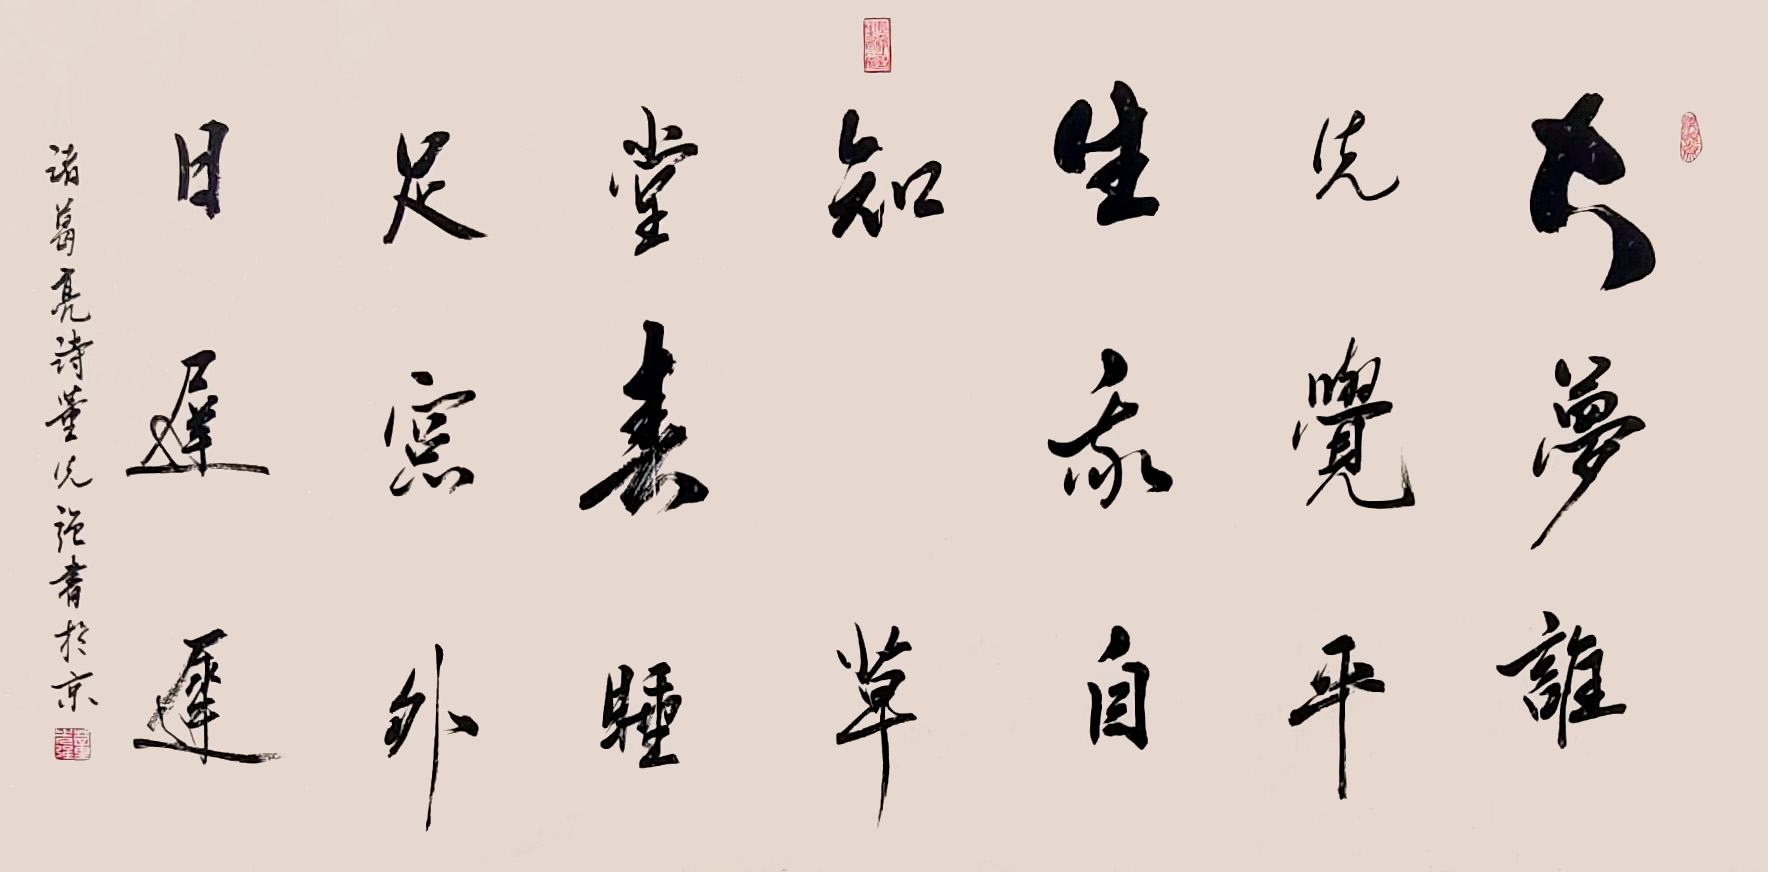 大夢誰
先覺平
生我自
知草
堂春睡
足窓外
日遲遲
諸葛亮詩董先強書於京